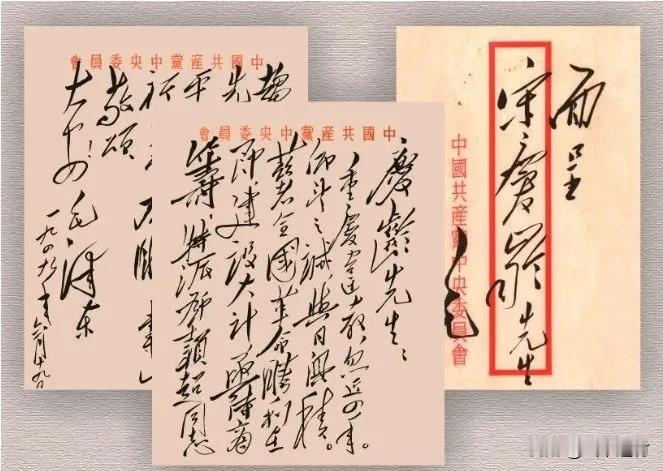 中國共產黨中央委員會
慶齡先生：
重慶違教，忽近四年。
仰望之誠，與日俱積。
茲者全國革命勝利在
即，建設大計，亟待商
籌，特派鄧穎超同志
中國共產黨中央委員會
先
平
祈
敬頌
大安！
毛澤東
一九四九年六月十九日
面呈
宋慶齡先生
中國共產黨中央委員會
毛